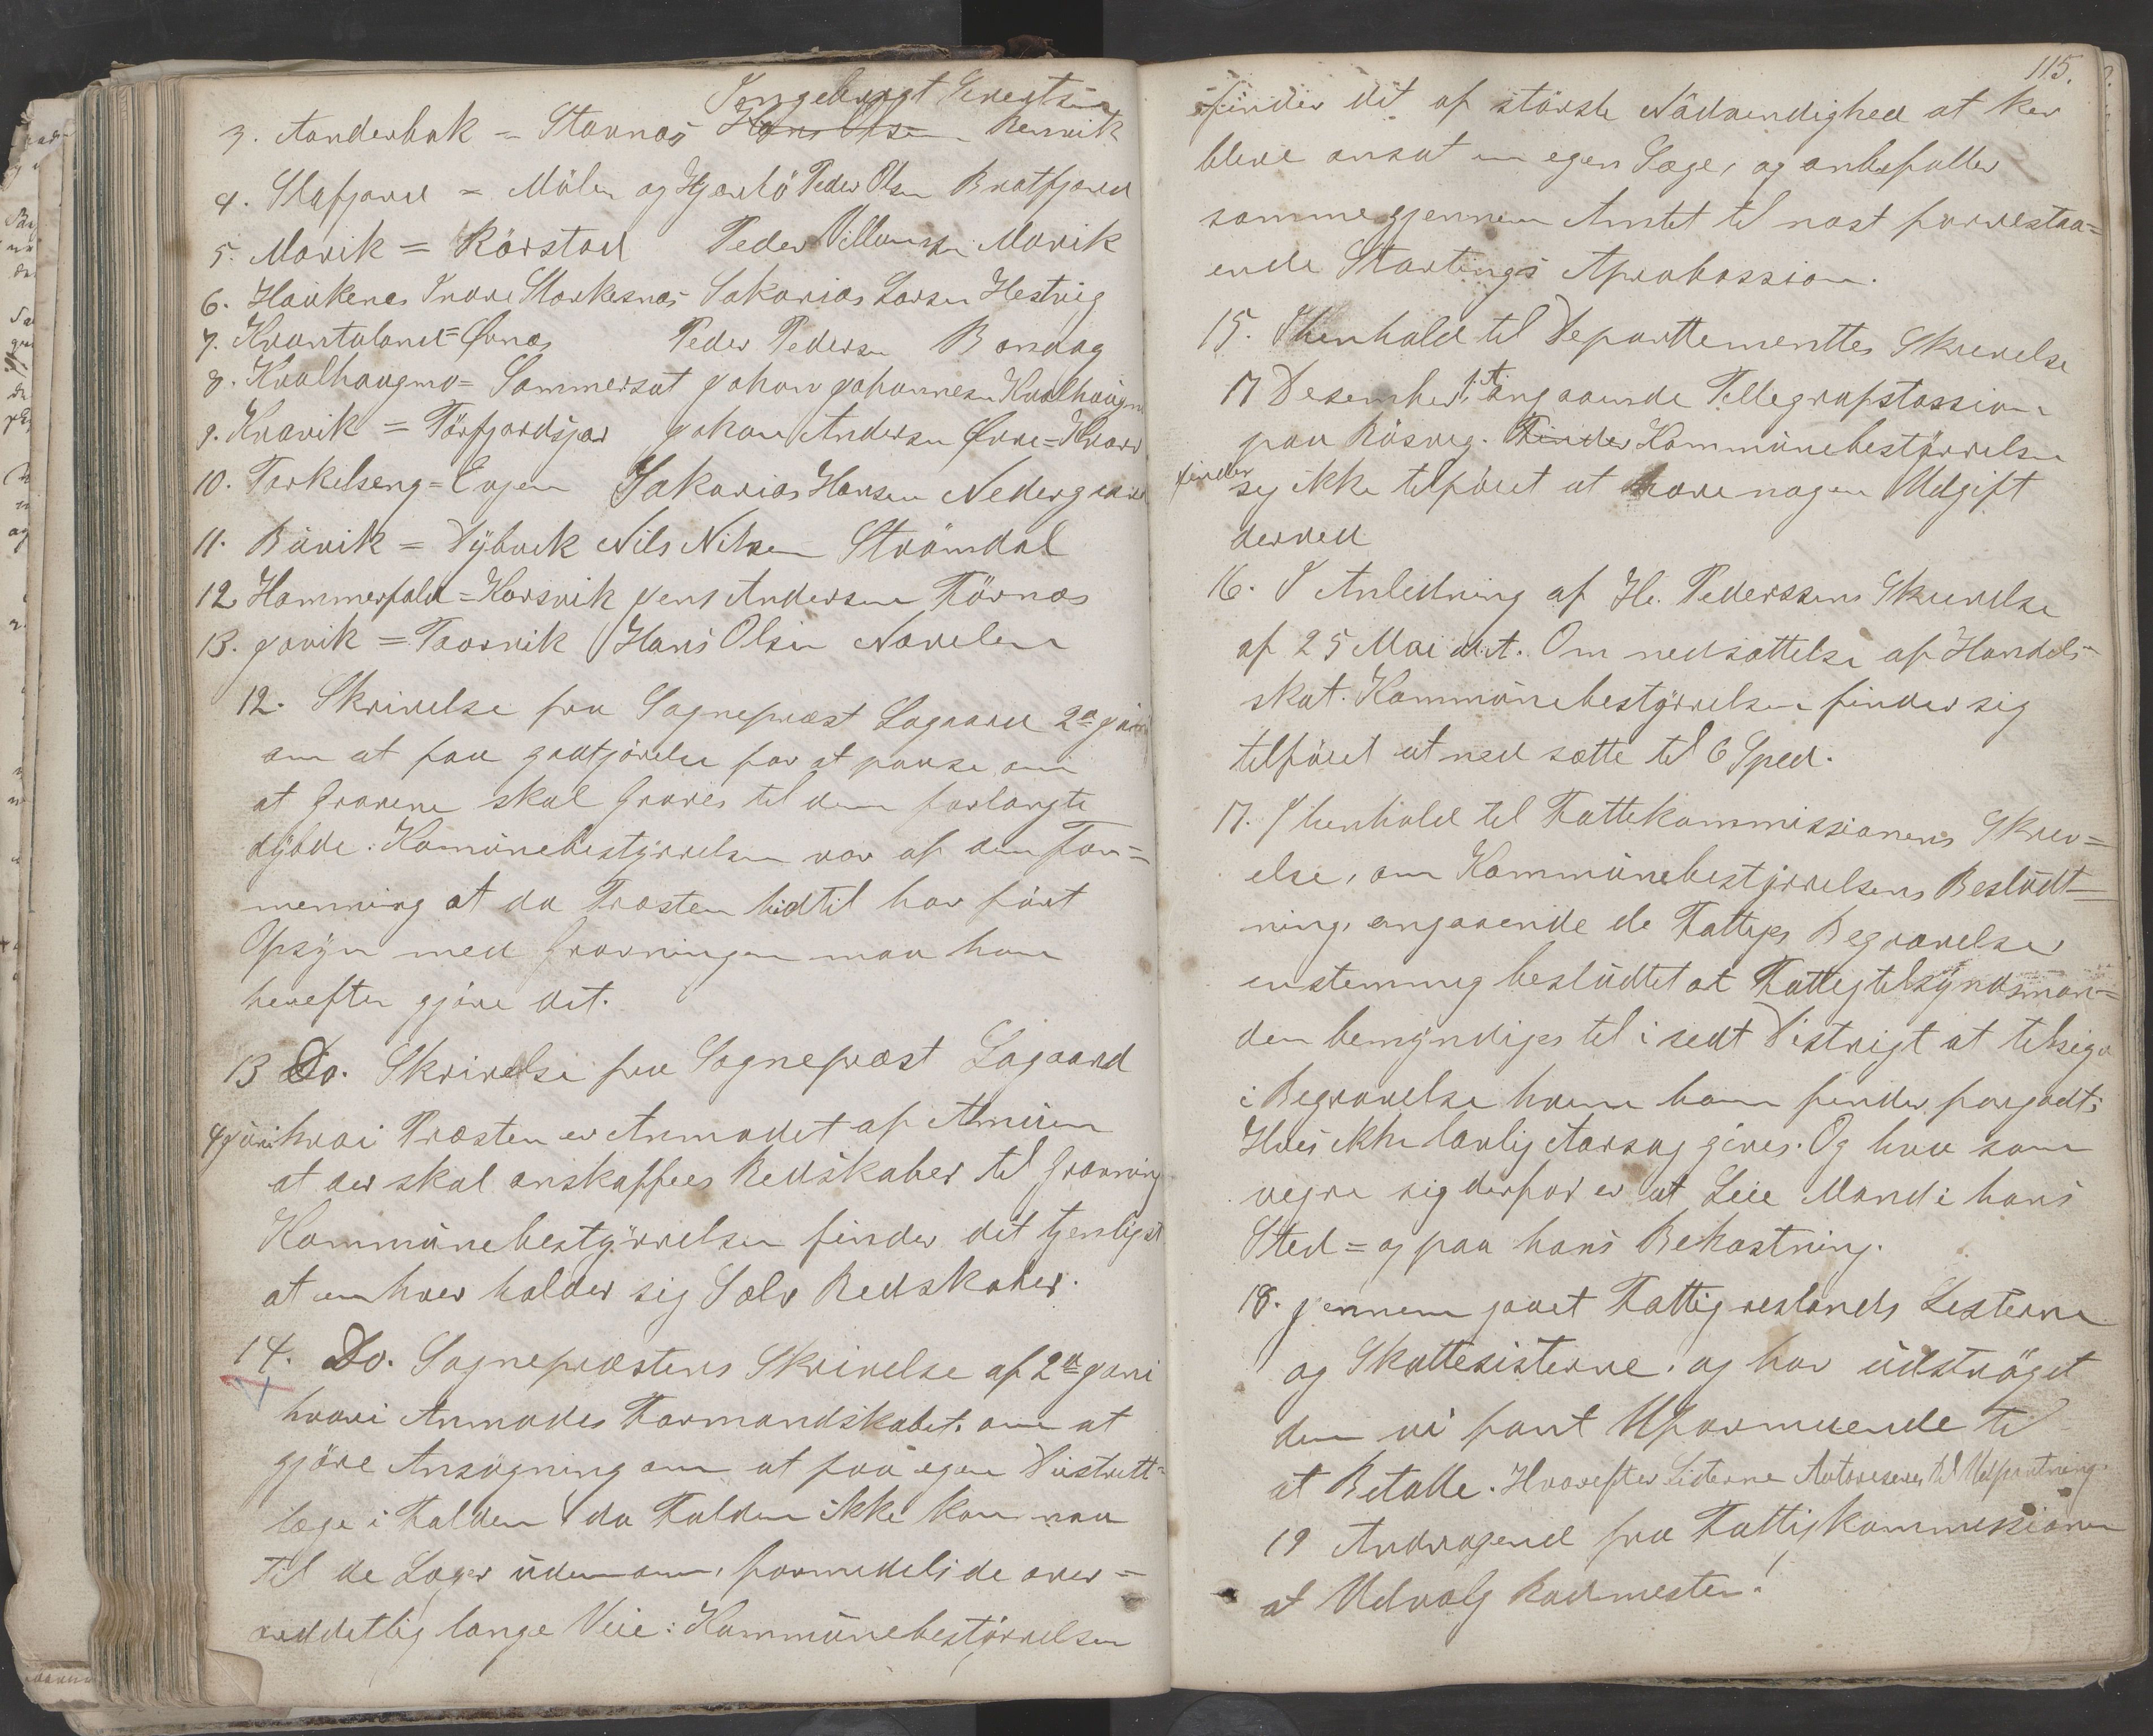 Ingebrigt Sivertsen
3. Aanderbak = Stavnæs Hans Olsen Rennvik
4. Slafjord = Mölen og Hjertö Peder Olsen Bratfjord
5. Movik = Rörstad Peder Villumsen Movik
6. Haukenes Indre Storkesnæs Sakarias Larsen Hestvig
7. Kvantoland = Ørnæs Peder Pedersen Bonaag
8. Kvalhaugmo = Sommerset Johan Johannesen Kvalhaugm
9. Kravik = Törfjordsjar Johan Andersen Øvre = Kvarv
10. Torkelseng = Evjen Sakarias Hansen Nedergaard
11. Bövik = Dÿbvik Nils Nilsen Strömdal
12 Hammerfald = Horsvik Jens Andersen Törnæs
13. Jovik = Taarnvik Hans Olsen Navelen
12. Skrivelse fra Sognepræst Lagaard 2den Juni
om at faa godtjörelse for at passe om
at Gravene skal Graves til den forlangte
dÿbde. Komünebestÿrrelsen var af den For=
menning at da Præsten hidtil har fört
Opsÿn med Gravningen maa han
herefter gjöre det.
13 Do. Skrivelse fra Sognepræst Lagaard
4 Juni hvori Præsten er Anmodet af Almüen
at der skal anskaffees Redskaber til Gravning
Kommünebestÿrrelsen finder det tjenligst
at enhver holder sig Sælv Redskaber.
14. Do. Sognepræstens Skrivelse af 2den Juni
hvori Anmodes Formandskabet. om at
gjöre Ansögning om at faa egen Distrikt=
læge i Folden da Folden ikke kan naa
til de Læger üdenom, formedelst de over=
ordetlig lange Veie: Kommünebestÿrrelsen
115.
finder det af störste Nödvendighed at her
bliver ansat en egen Læge, og anbefaller
samme gjennem Amtet til næst forrestaa=
ende Stortings Aprobassion.
15. I henhold til Departtementtes Skrivelse
17 Desember f. A. angaaende Tellegrafstassion
paa Rösvig. Finder Kommünebestÿrrelsen
finder sig ikke tilföiet at have nogen Udgift
derved
16. I Anledning af Hr. Pederssens Skrivelse
af 25 Mai d. A. Om nedsættelse af Handels=
skat. Kommünebestÿrrelsen finder sig
tilföiet at ned sætte til 6 Sped.
17. I henhold til Fattikommissionens Skriv=
else, om Kommünebestÿrrelsens Beslüdt=
ning, angaaende de Fattiges Begravelse,
enstemmig beslüdtet at Fattigtilsÿndsman=
den bemÿndiges til i sedt Distrigt at tilsige
i Begravelse hvem han finder forgodt.
Hvis ikke lovlig Aarsag gives. Og hvo som
vegre sig derfor er at Leie Mand i hans
Sted = og paa hans Bekostning.
18. Jennem gaaet Fattigrestands Listerne
og Skattelisterne. og har üdströget
dem vi fant Uformuende til
at Betalle. Hvorefter Listerne Autoriseres til Udpantning.
19 Andragend fra Fattigkommissionen
at Udvalg Rodmester!